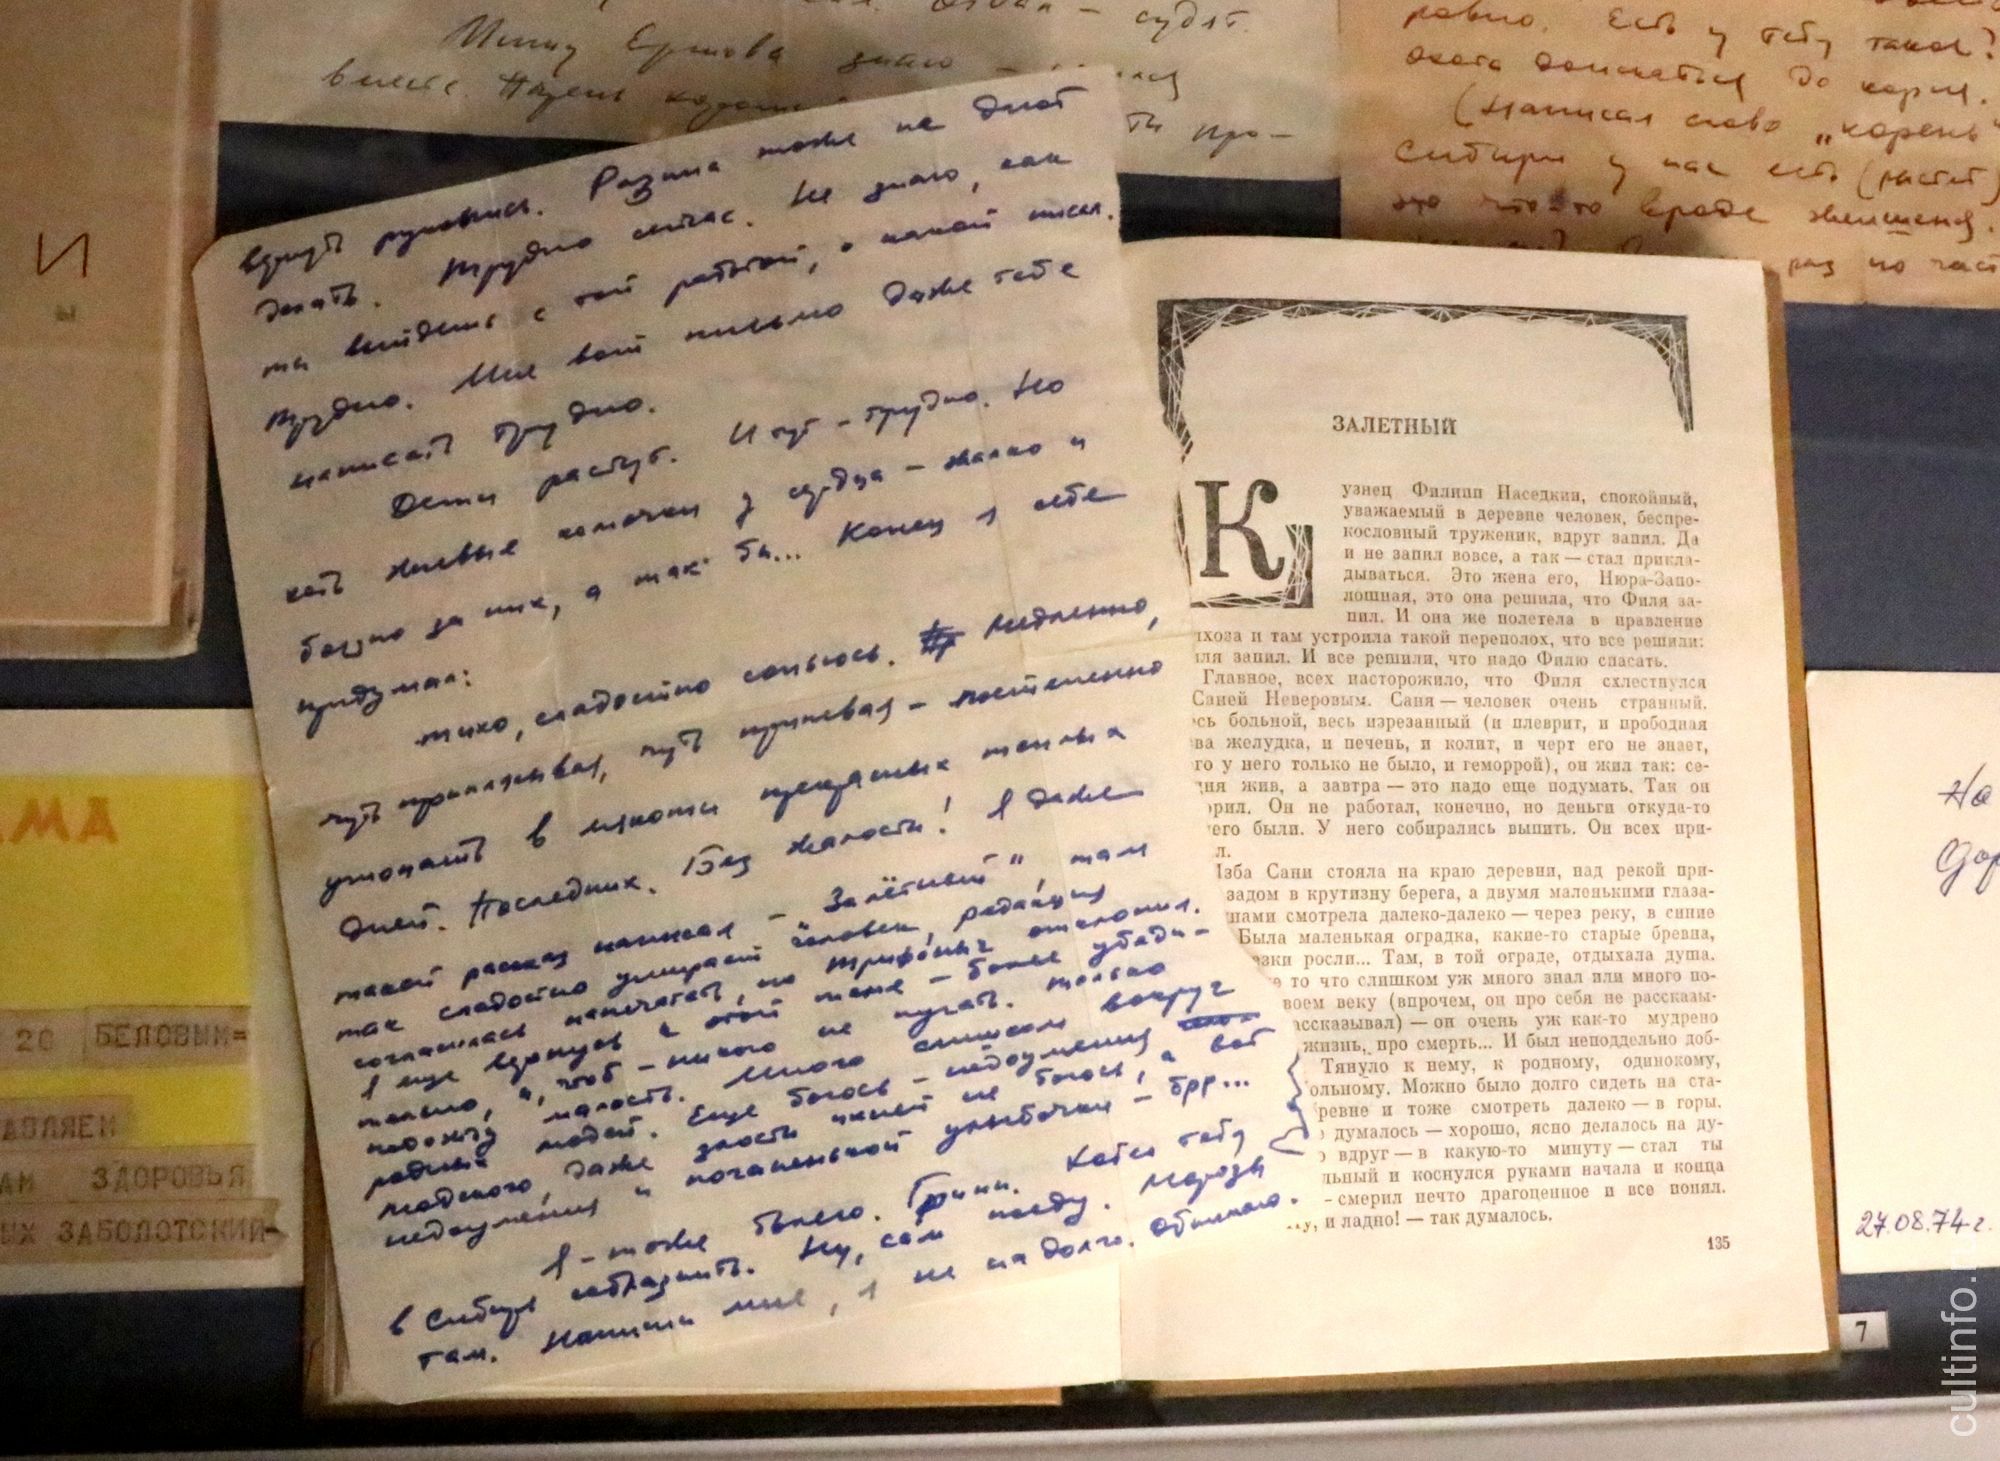 Мишу Ершова знаю –
вместе. Парень
равно. Есть у тебя такое?
охота докопаться до корня.
(Написал слово „корень"
Сибири у нас есть (растет)
это что-то вроде женьшеня.
раз по част
И
ы
вернуть рукопись. Разина тоже не дают
делать. Трудно сейчас. Не знаю, как
ты выйдешь с той работой, о какой писал.
Трудно. Мне вот письмо даже тебе
написать трудно.
Дети растут. И тут – трудно. Но
есть живые комочки у сердца – жалко и
боязно за них, а так бы... Конец я себе
придумал:
тихо, сладостно сопьюсь. Медленно,
чуть припевая – постепенно
утопать в мякоти прекрасных теплых
дней. Последних. Без жалости! Я даже
такой рассказ написал – „Залётный", там
так сладостно умирает человек, редакция
согласилась напечатать, но Трифоныч отклонил.
Я еще вернусь к этой теме – более убеди-
тельно, чтоб – никого не пугать. Только
подожду малость. Много слишком вокруг
родных людей. Еще боюсь – недоумения
людского, даже злости ихней не боюсь, а вот
недоумения и поганенькой улыбочки – брр...
Я – тоже болею. Грипп. Хотел тебя
в Сибирь соблазнить. Ну, сам поеду. Морозы
там. Напиши мне, я не надолго. Обнимаю.
ЗАЛЕТНЫЙ
Кузнец Филипп Наседкин, спокойный,
уважаемый в деревне человек, беспре-
кословный труженик, вдруг запил. Да
и не запил вовсе, а так — стал прикла-
дываться. Это жена его, Нюра-Запо-
лошная, это она решила, что Филя за-
пил. И она же полетела в правление
лхоза и там устроила такой переполох, что все решили:
ля запил. И все решили, что надо Филю спасать.
Главное, всех насторожило, что Филя схлестнулся
Саней Неверовым. Саня — человек очень странный.
сь больной, весь изрезанный (и плеврит, и прободная
ва желудка, и печень, и колит, и черт его не знает,
го у него только не было, и геморрой), он жил так: се-
ня жив, а завтра — это надо еще подумать. Так он
орил. Он не работал, конечно, но деньги откуда-то
него были. У него собирались выпить. Он всех при-
л.
Изба Сани стояла на краю деревни, над рекой при-
задом в крутизну берега, а двумя маленькими глаза-
нами смотрела далеко-далеко — через реку, в синие
Была маленькая оградка, какие-то старые бревна,
зки росли... Там, в той ограде, отдыхала душа.
е то что слишком уж много знал или много по-
воем веку (впрочем, он про себя не рассказы-
ассказывал) — он очень уж как-то мудрено
жизнь, про смерть... И был неподдельно доб-
Тянуло к нему, к родному, одинокому,
ольному. Можно было долго сидеть на ста-
ревне и тоже смотреть далеко — в горы.
думалось — хорошо, ясно делалось на ду-
о вдруг — в какую-то минуту — стал ты
льный и коснулся руками начала и конца
– смерил нечто драгоценное и все понял.
у, и ладно! — так думалось.
135
МА
20 БЕЛОВЫМ=
АВЛЯЕМ
АМ ЗДОРОВЬЯ
ЫХ ЗАБОЛОТСКИЙ-
На
27.08.74 г.
7
cultinfo.